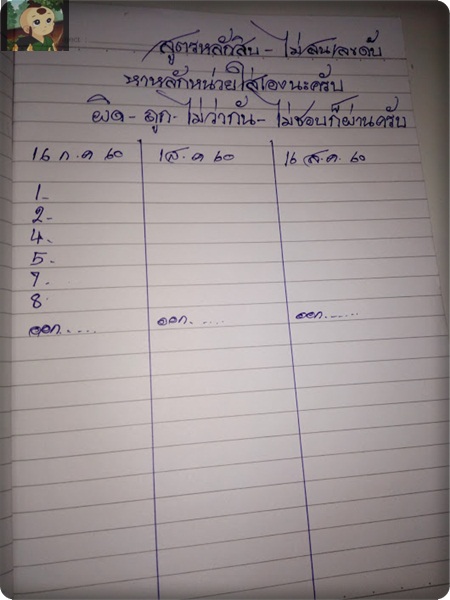 สูตรหลักสิบ - ไม่สนเลขดับ
หาหลักหน่วยใส่เองนะครับ
ผิด - ถูก - ไม่ว่ากัน - ไม่ชอบก็ผ่านครับ
16 ก.ค 60 1ส.ค 60 16 ส.ค. 60
1-
2-
4-
5-
7-
8-
ออก..... ออก...... ออก......